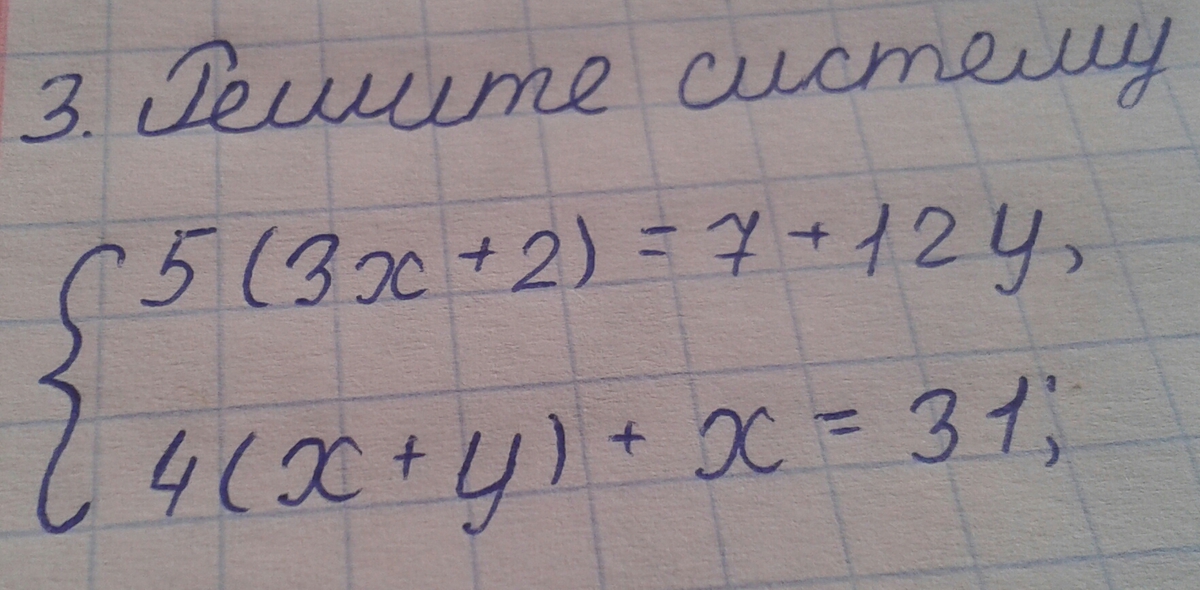 3. Решите систему
5(3x+2)=7+12y,
4(x+y)+x=31;